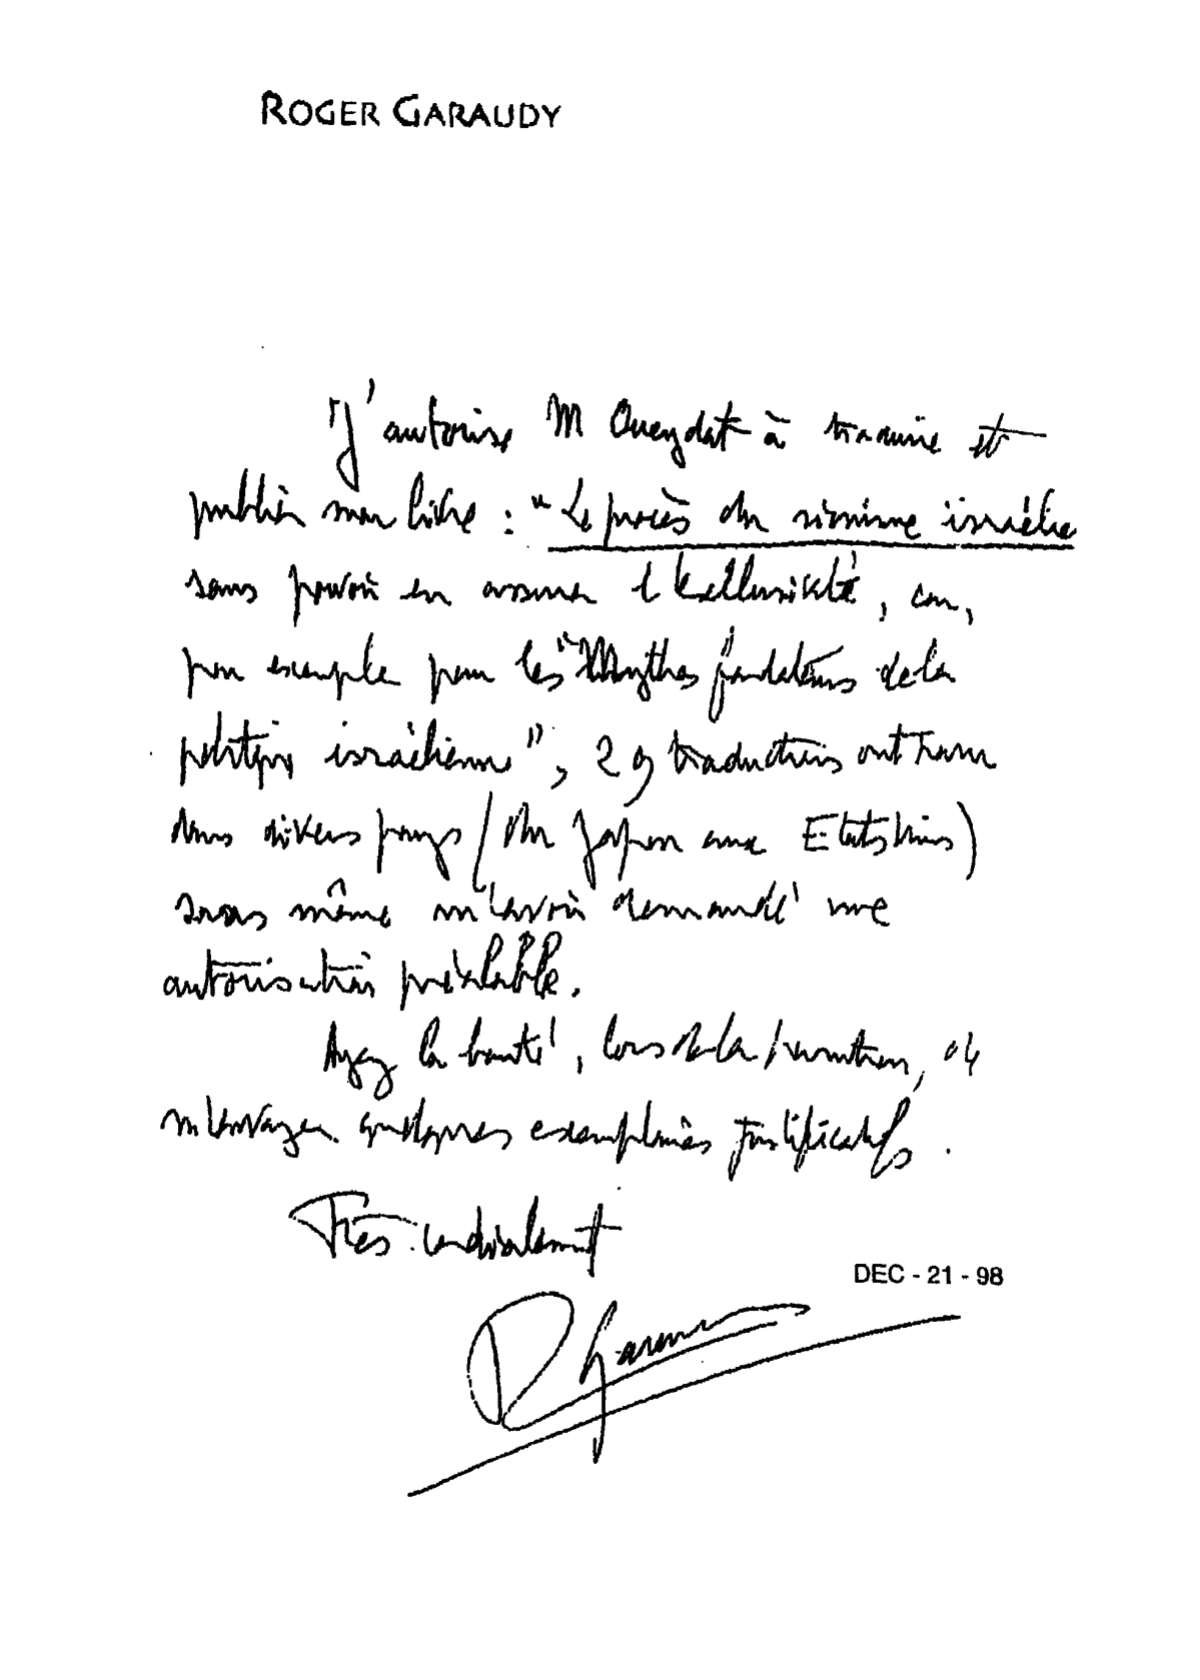 ROGER GARAUDY
J'autorise M Oueydat à traduire et
publier mon livre : "Le procès du sionisme israélie
sans pouvoir en assurer l'exclusivité, car,
par exemple pour les "Mythes fondateurs de la
politique israélienne", 29 traductions ont paru
dans divers pays (du Japon aux Etats Unis)
sans même m'avoir demandé une
autorisation préalable.
Ayez la bonté, lors de la parution, de
m'envoyer quelques exemplaires justificatifs.
Très cordialement
DEC - 21 - 98
R Garaudy